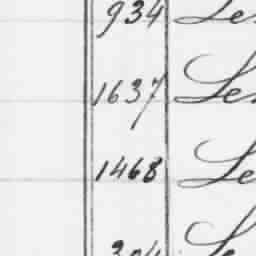 934 Le
1637 Le
1468 Le
304 Le